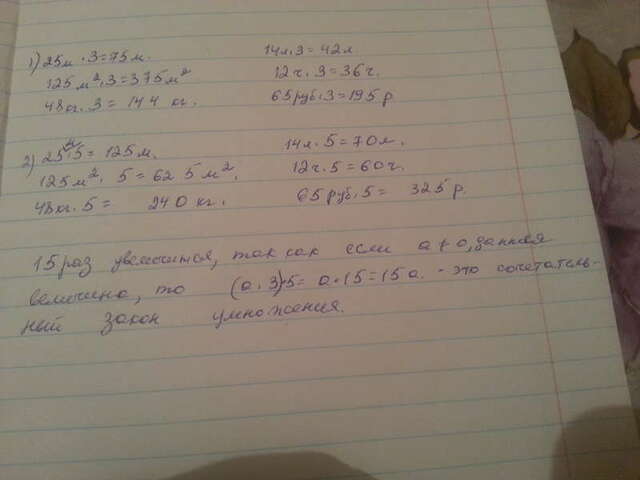 1) 25м · 3 = 75 м. 14л · 3 = 42л
125 м² · 3 = 375 м² 12 ч · 3 = 36 ч.
48 кг · 3 = 144 кг. 65 руб · 3 = 195 р
2) 25м · 5 = 125 м. 14л · 5 = 70л.
125 м² · 5 = 625 м². 12 ч · 5 = 60 ч.
48кг · 5 = 240 кг. 65 руб · 5 = 325 р.
15 раз увеличится, так как если а данная
величина, то (а · 3) · 5 = а · 15 = 15а. - это сочетатель-
ный закон умножения.